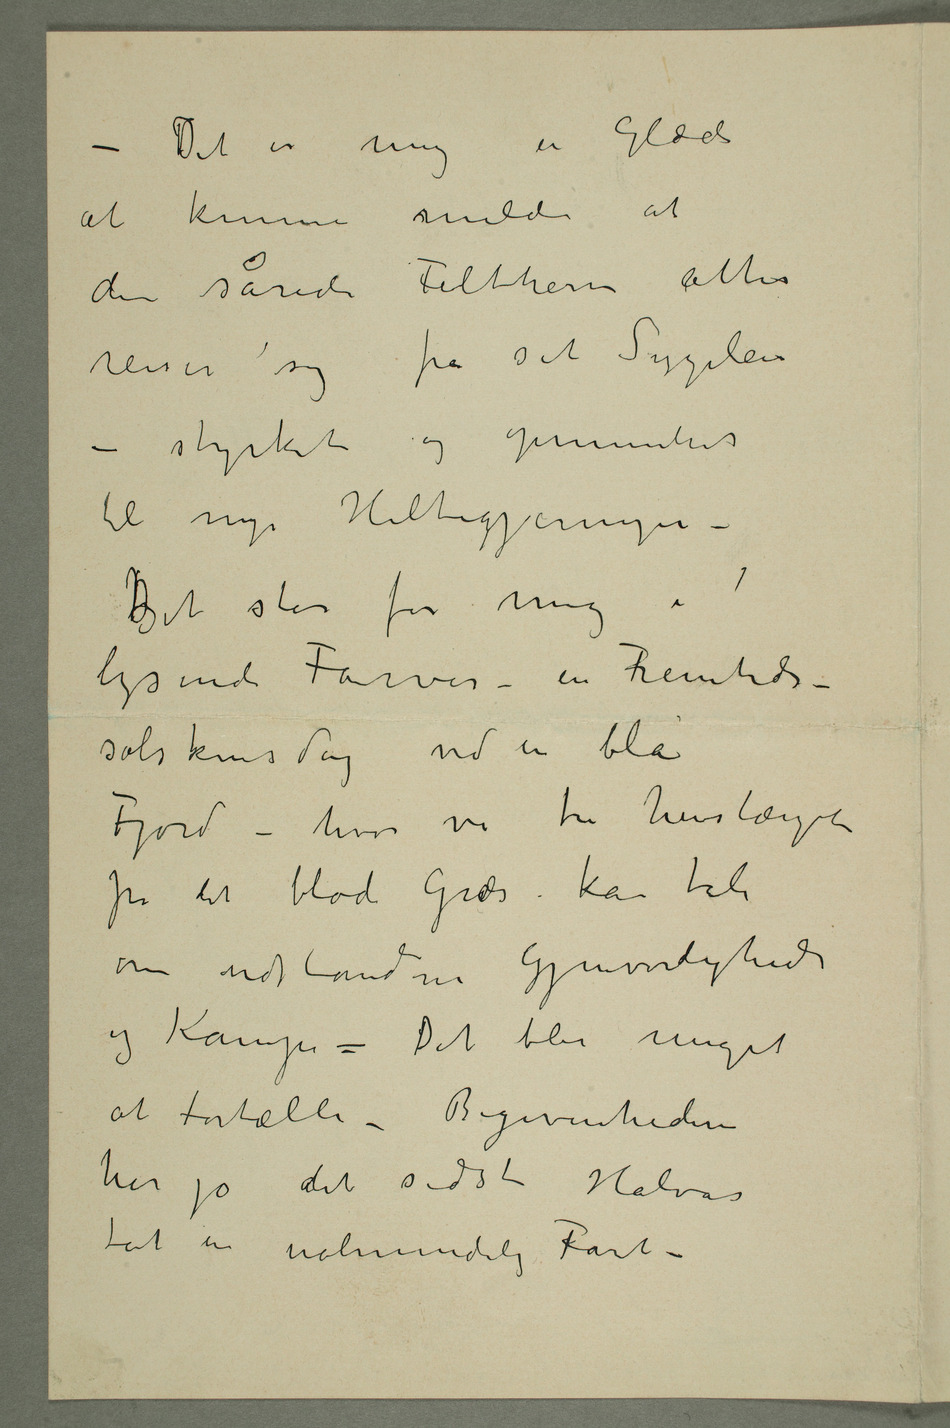 – Det er mig en Glæde
at kunne melde at
den sårede Feltherre atter
reiser sig fra sit Sygeleie
– styrket og opmuntret
til nye Heltegjerninger –
Det står for mig i
lysende Farver – en Fremtids–
solskinsdag ved en blå
Fjord – hvor vi tre henslængte
på det bløde Græs kan tale
om udståndne Gjenvordigheder
og Kampe – Det blir meget
at fortælle – Begivenhederne
har jo det sidste Halvår
tat en ualmindelig Fart –